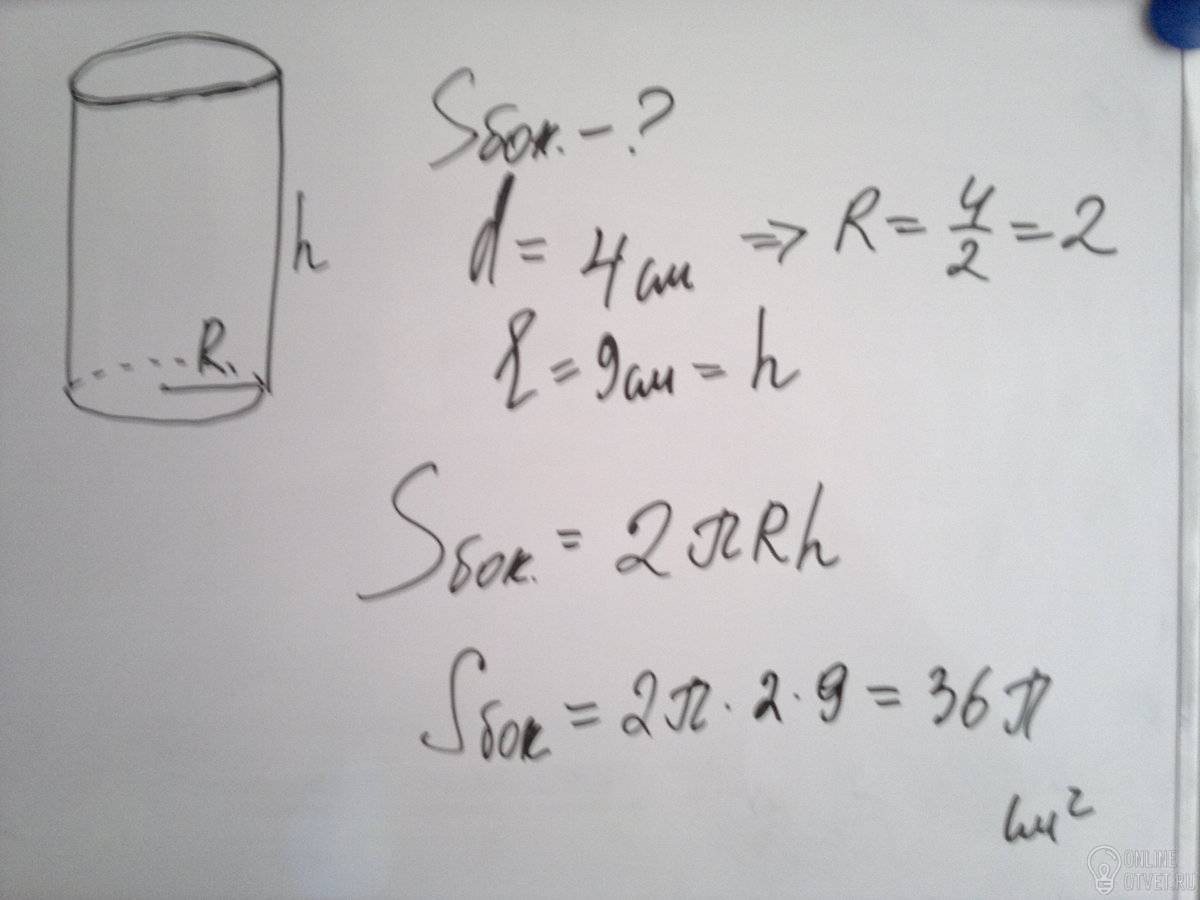 h
R
Sбок. – ?
d = 4 см => R = 4/2 = 2
l = 9 см = h
Sбок. = 2πRh
Sбок = 2π · 2 · 9 = 36π
см²
ONLINE
OTVET.RU